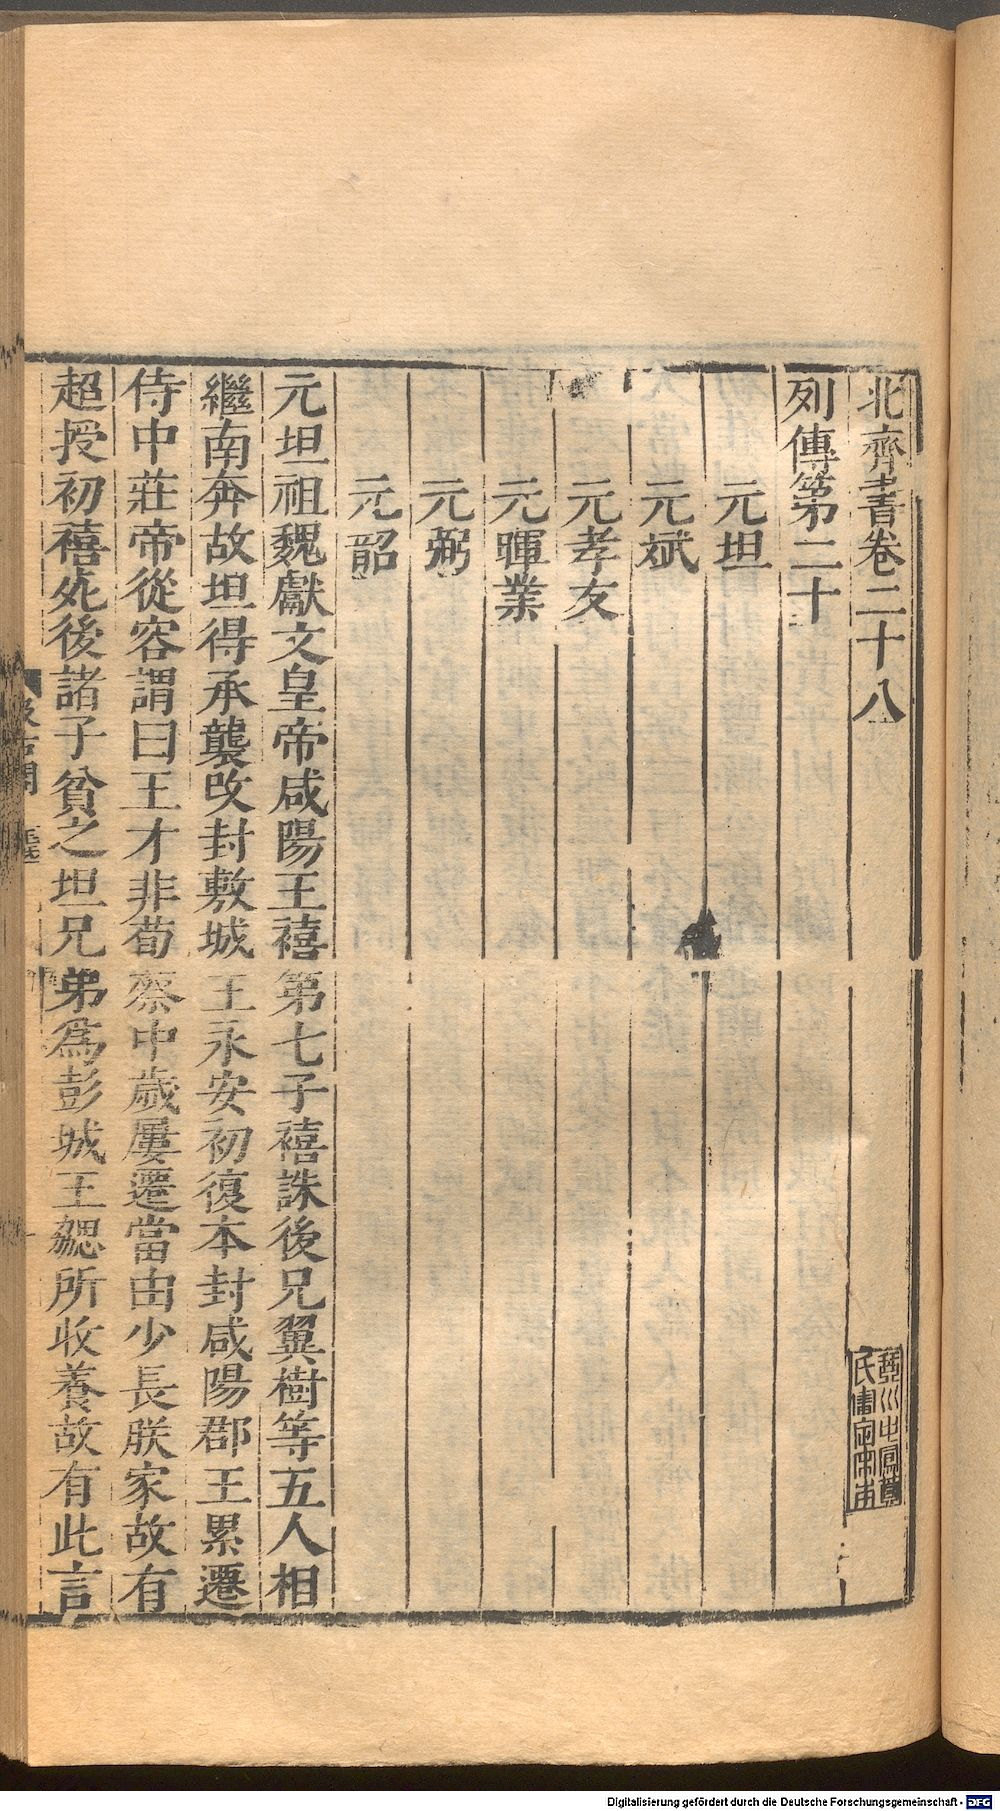 北齊書卷二十八
列傳第二十
元坦
元斌
元孝友
元暉業
元弼
元韶
元坦祖魏獻文皇帝咸陽王禧第七子禧誅後兄翼樹等五人相
繼南奔故坦得承襲改封敷城王永安初復本封咸陽郡王累遷
侍中莊帝從容謂曰王才非荀蔡中歲屢遷當由少長朕家故有
超授初禧死後諸子貧乏坦兄弟爲彭城王勰所收養故有此言
Digitalisierung gefördert durch die Deutsche Forschungsgemeinschaft - DFG